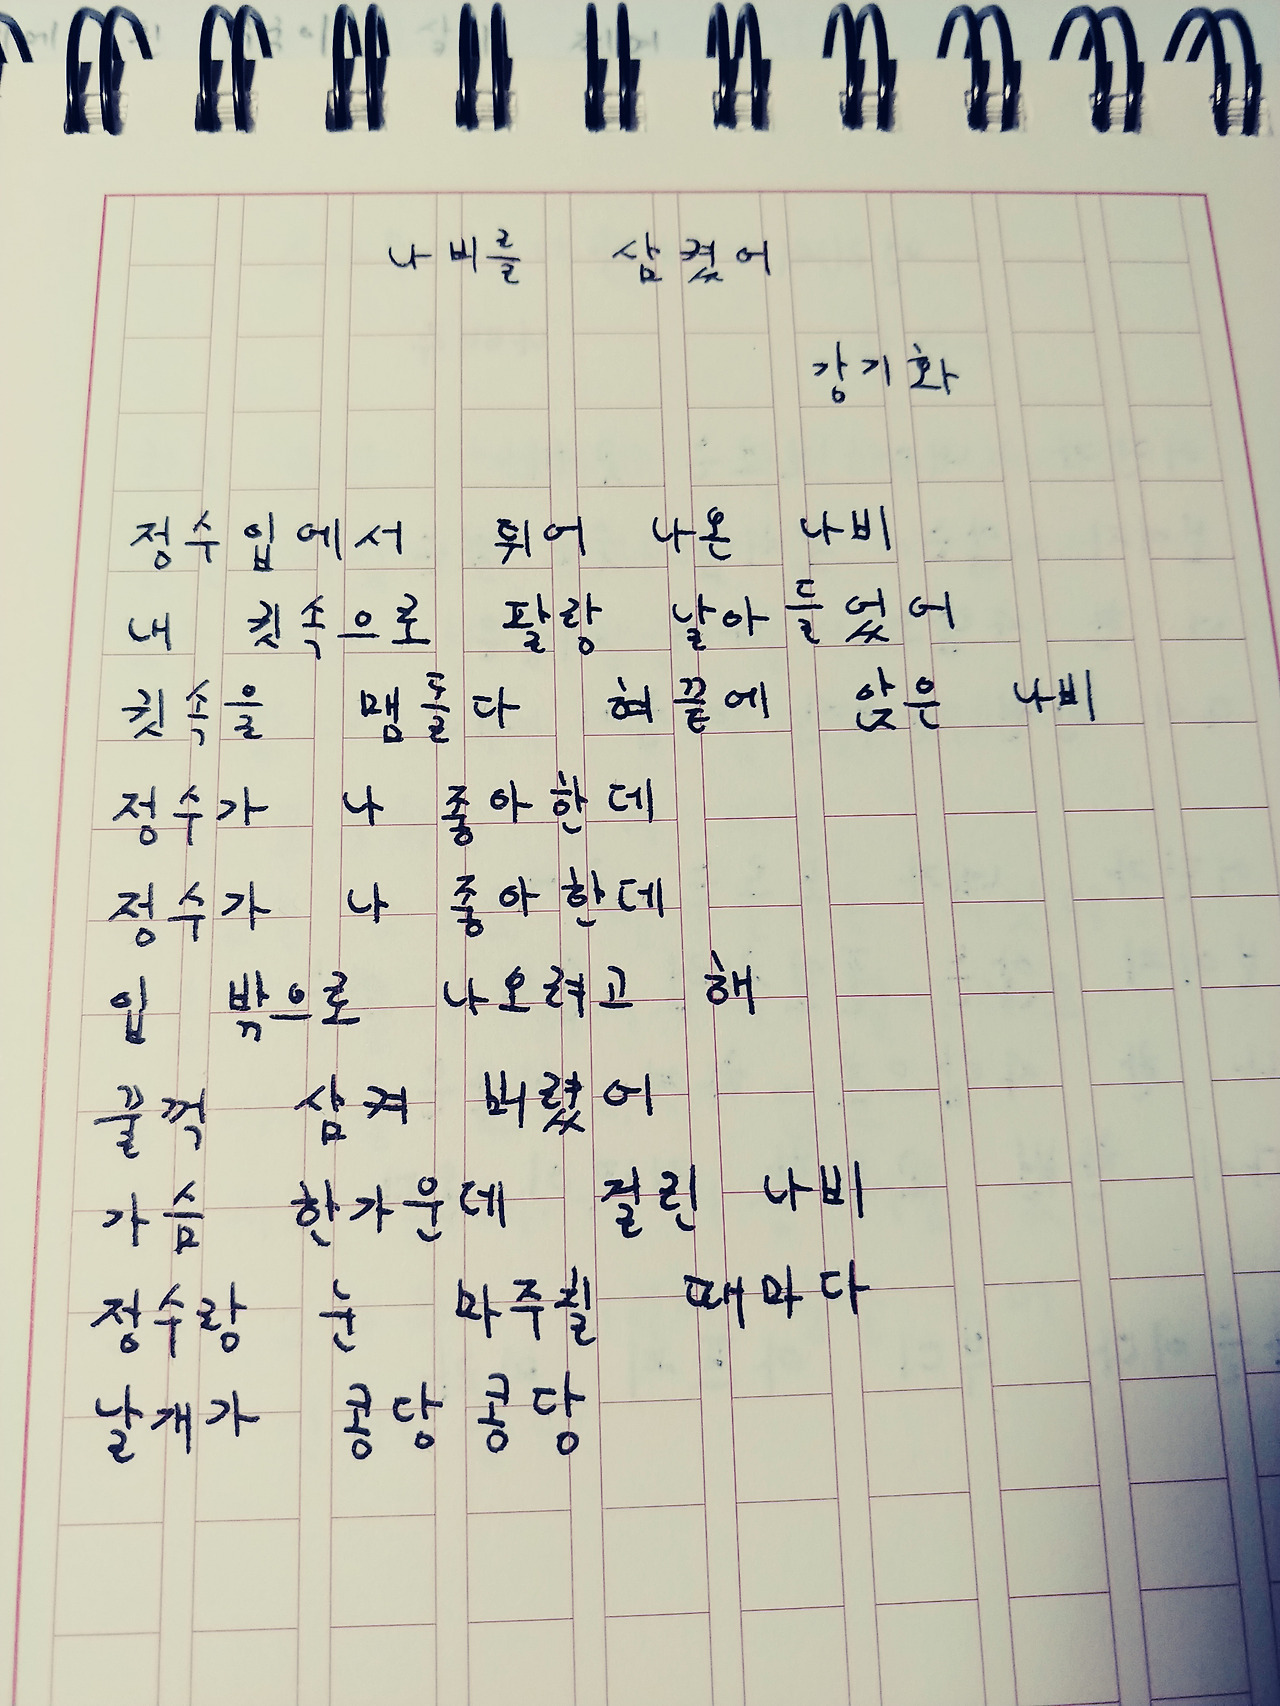 나비를 삼켰어
강기화
정수입에서 튀어 나온 나비
내 귓속으로 팔랑 날아들었어
귓속을 맴돌다 혀끝에 앉은 나비
정수가 나 좋아한데
정수가 나 좋아한데
입 밖으로 나오려고 해
꿀꺽 삼켜 버렸어
가슴 한가운데 걸린 나비
정수랑 눈 마주칠 때마다
날개가 콩당콩당